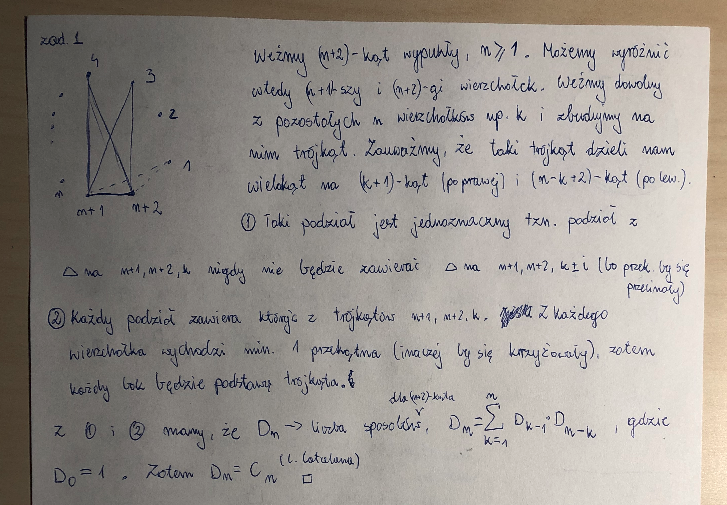 zad. 1
Weźmy (n+2)-kąt wypukły, n ⩾ 1. Możemy wyróżnić
wtedy (n+1)-szy i (n+2)-gi wierzchołek. Weźmy dowolny
z pozostałych n wierzchołków np. k i zbudujmy na
nim trójkąt. Zauważmy, że taki trójkąt dzieli nam
wielokąt na (k+1)-kąt (po prawej) i (n-k+2)-kąt (po lew.).
4
3
2
1
n
n+1
n+2
① Taki podział jest jednoznaczny tzn. podział z
△ na n+1, n+2, k nigdy nie będzie zawierać △ na n+1, n+2, k±i (bo przek. by się
przecinały)
② Każdy podział zawiera któryś z trójkątów n+1, n+2, k. Z każdego
wierzchołka wychodzi min. 1 przekątna (inaczej by się krzyżowały), zatem
każdy bok będzie podstawą trójkąta.
dla (n+2)-kąta
Z ① i ② mamy, że Dₙ → liczba sposobów, Dₙ = ∑_{k=1}^{n} D_{k-1} · D_{n-k}, gdzie
D₀ = 1. Zatem Dₙ = Cₙ (l. Catalana) □